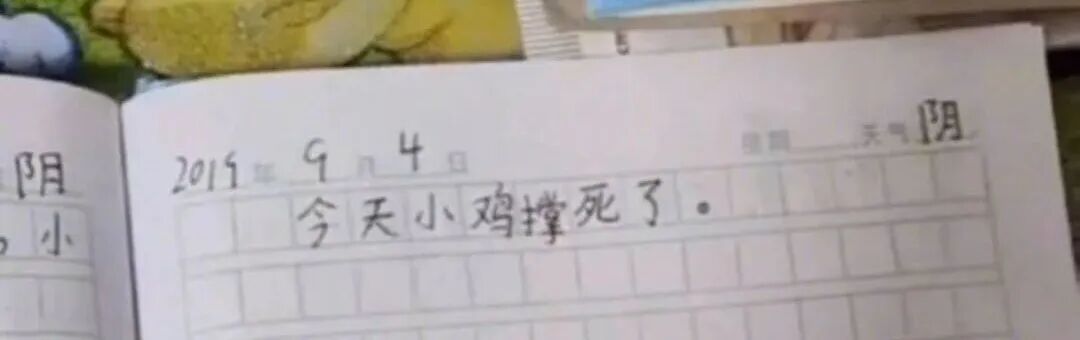 阴
，小
2019年 9月 4日 星期 天气阴
今天小鸡撑死了。